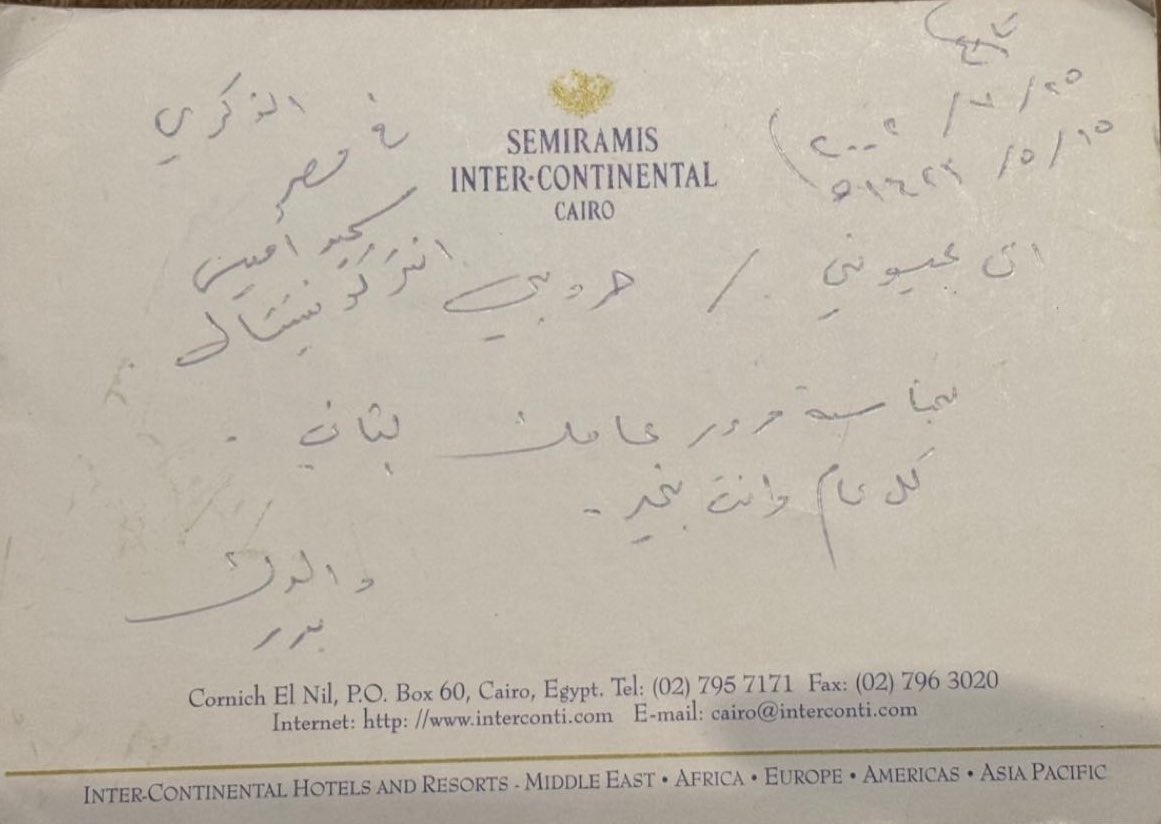 الذكرى
في مصر
سميراميس
انتركونتيننتال
SEMIRAMIS
INTER·CONTINENTAL
CAIRO
٢٥/٧/٢٠٠٢
١٥/٥/١٤٢٣هـ
الى عيوني /
بمناسبة مرور عامك الثاني .
كل عام وانت بخير .
والدك
بدر
Cornich El Nil, P.O. Box 60, Cairo, Egypt. Tel: (02) 795 7171 Fax: (02) 796 3020
Internet: http: //www.interconti.com E-mail: cairo@interconti.com
INTER-CONTINENTAL HOTELS AND RESORTS - MIDDLE EAST • AFRICA • EUROPE • AMERICAS • ASIA PACIFIC